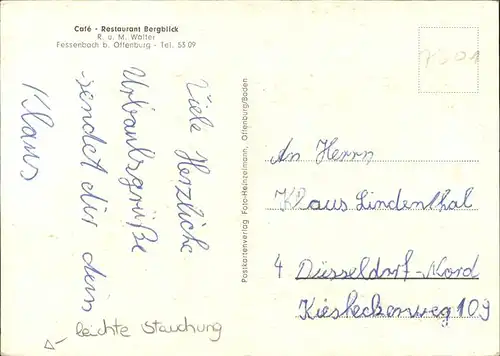 Café - Restaurant Bergblick
R. u. M. Walter
Fessenbach b. Offenburg - Tel. 53 09
Viele Herzliche
Urlaubsgrüße
sendet dir dein
Klaus
leichte Stauchung
Postkartenverlag Foto-Heinzelmann, Offenburg/Baden
An Herrn
Klaus Lindenthal
4 Düsseldorf-Nord
Kiesheckerweg 109